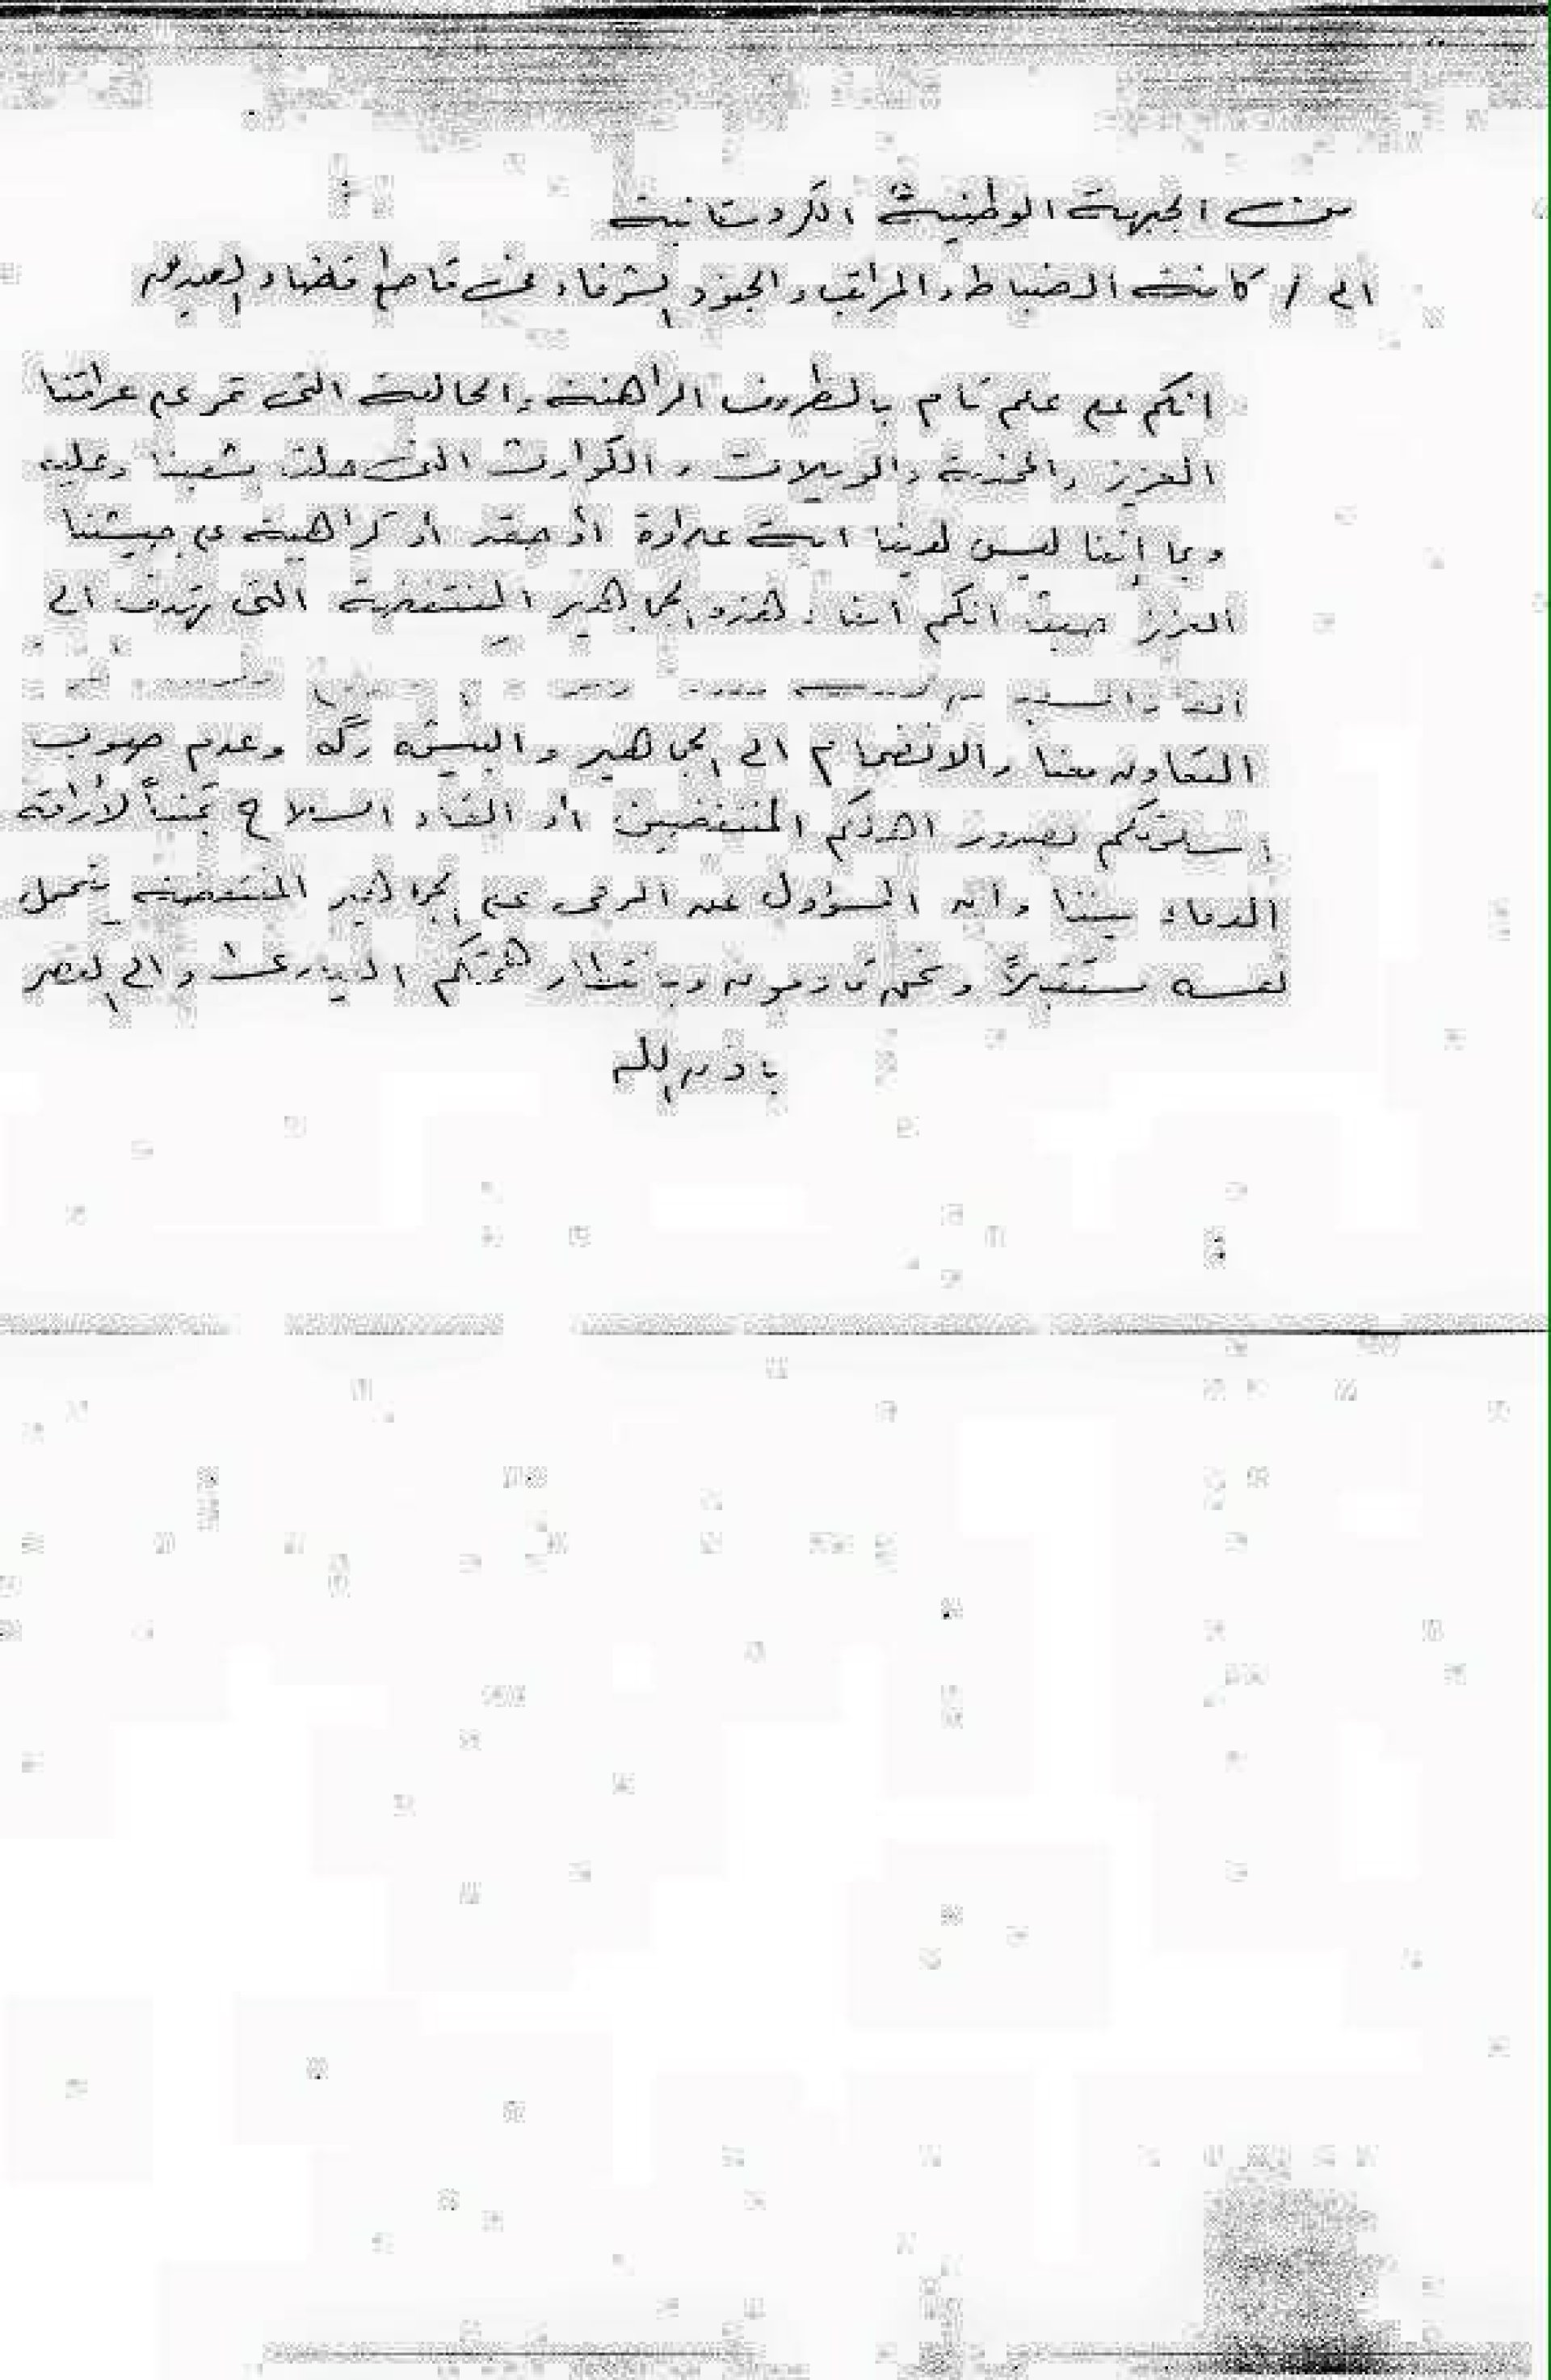 من الجبهة الوطنية الكردستانية
الى / كافة الضباط والمراتب والجنود الشرفاء في قاطع قضاء
انكم على علم تام بالظروف الراهنة والحالية التي تمر على عراقنا
العزيز والمحزنة والويلات والكوارث التي حلت بشعبنا وعليه
وبما إننا ليس لدينا اية عداوة أو حقد أو كراهية على جيشنا
العزيز حيث انكم ابناء هذه الجماهير المنتفضة التي تهدف الى
التعاون معنا والانضمام الى الجماهير والبيش مرگه وعدم صوب
اسلحتكم لصدور اهلكم المنتفضين أو القاء السلاح تجنباً لأراقة
الدماء بيننا وان المسؤول عن الرمي على الجماهير المنتفضة يتحمل
نفسه مستقبلاً ونحن قادمون وبانتظار همتكم والى النصر
باذن الله